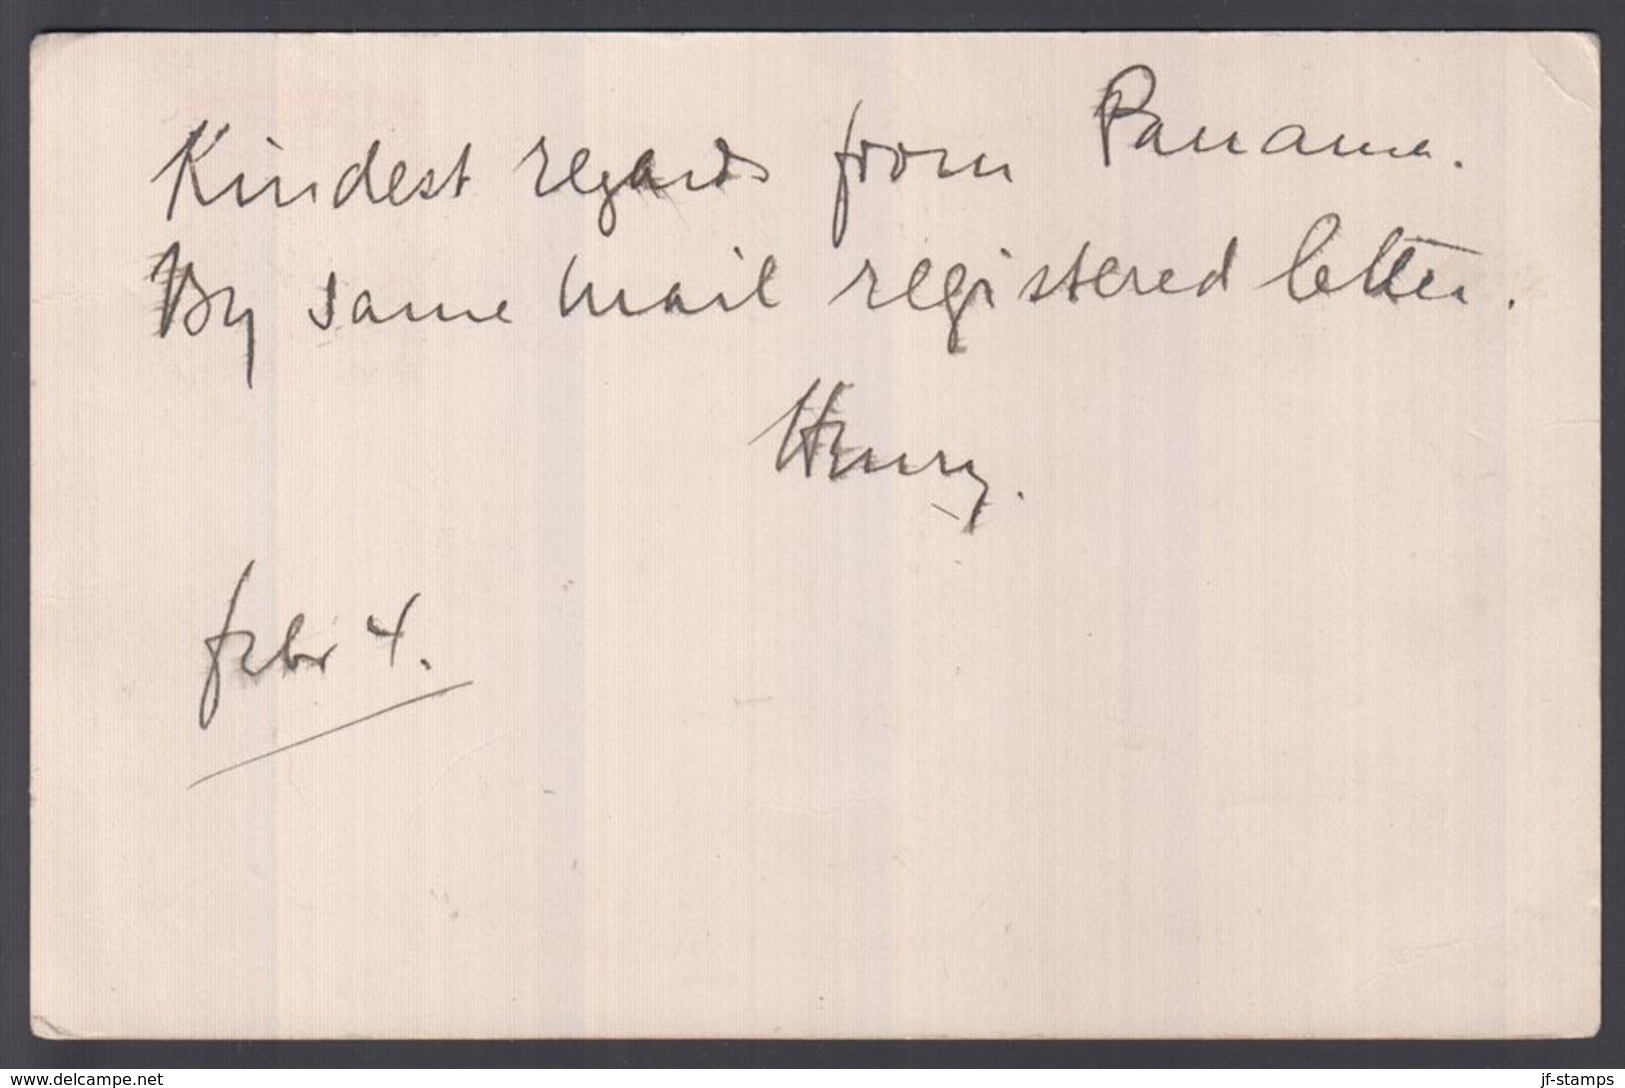 Kindest regards from Panama.
By same mail registered letter.
Henry.
febr 4.
www.delcampe.net
jf-stamps